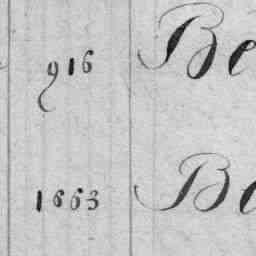 916 Be
1663 Be